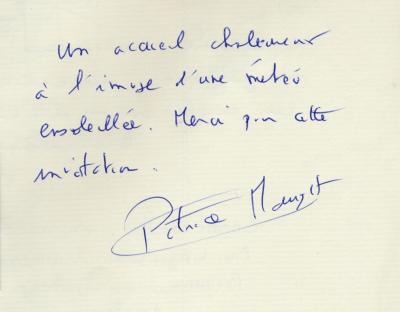 Un accueil chaleureux
à l'image d'une météo
ensoleillée. Merci pour cette
invitation.
Patrice